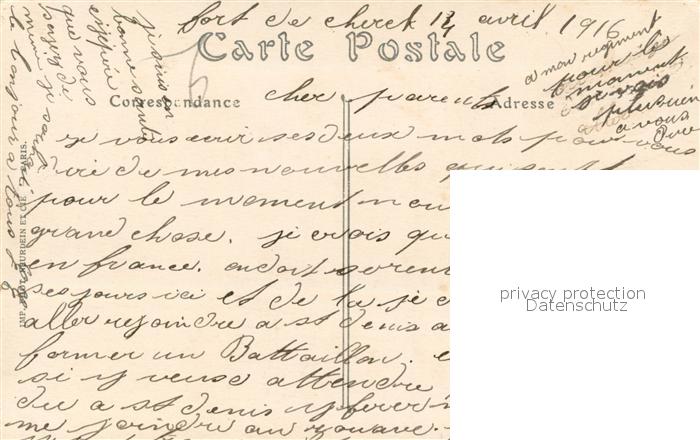 fort de cherck 14 avril 1916
Carte Postale
Correspondance
Adresse
cher parents
je vous ecris ses deux mots pour vous
dire de mes nouvelles qui sont
pour le moment
grand chose. je crois qu
en france. on doit
ses jours ici et de la je
aller rejoindre a st denis a
former un Battaillon.
si y veuse attendre
du a st denis y ferer
me joindre au zouave.
a mon regiment
pour les
moment
je vois
plus rien
a vous
Dire
je suis en
bonne santé
espère
que vous
soyez de
meme je
le bonjour a tous
IMP. PHOT. NEURDEIN ET CIE PARIS.
privacy protection
Datenschutz